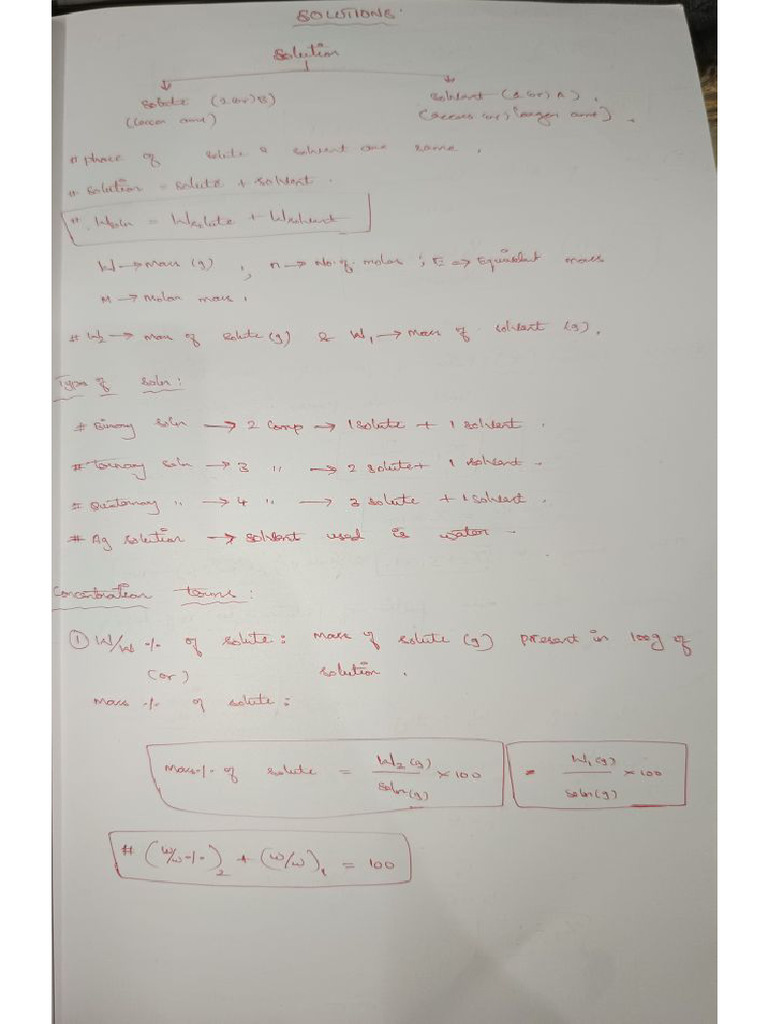 SOLUTIONS.
Solution
Solute (2 (or) B) Solvent (1 (or) A).
(lesser amt) (excess (or) larger amt).
# phase of solute & solvent are same.
# Solution = Solute + Solvent.
# Wsoln = Wsolute + Wsolvent
W → mass (g), n → No. of moles; E → Equivalent mass
M → Molar mass.
# W2 → mass of solute (g) & W1 → mass of solvent (g).
Types of soln:
# Binary soln → 2 comp → 1 solute + 1 solvent.
# Ternary soln → 3 " → 2 solute + 1 solvent.
# Quaternary " → 4 " → 3 solute + 1 solvent.
# Aq solution → solvent used is water.
Concentration terms:
① W/W % of solute: mass of solute (g) present in 100g of
(or) solution.
mass % of solute:
Mass % of solute = W2 (g) / soln (g) × 100 = W1 (g) / soln (g) × 100
# (W/W %)2 + (W/W)1 = 100